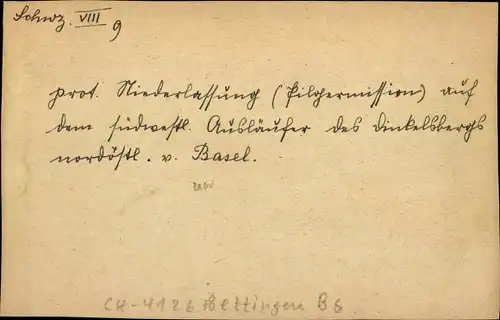 Schwz. VIII 9
prot. Niederlassung (Pilgermission) auf
dem südwestl. Ausläufer des Dinkelsbergs
nordöstl. v. Basel.
CH-4126 Bettingen BS